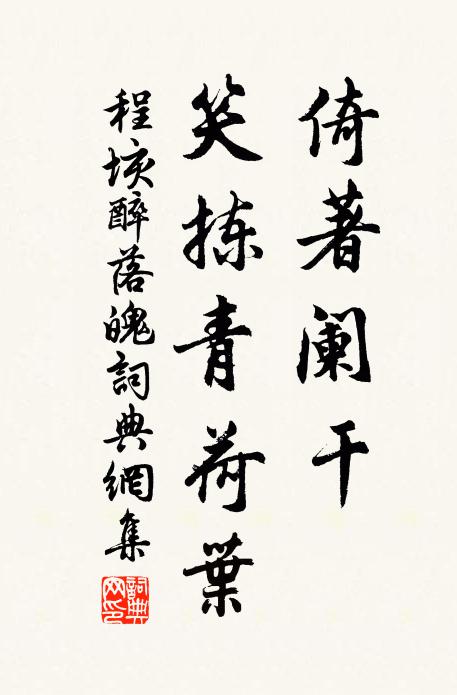 倚著阑干
笑拣青荷葉
程垓醉落魄詞典網集
詞典网印